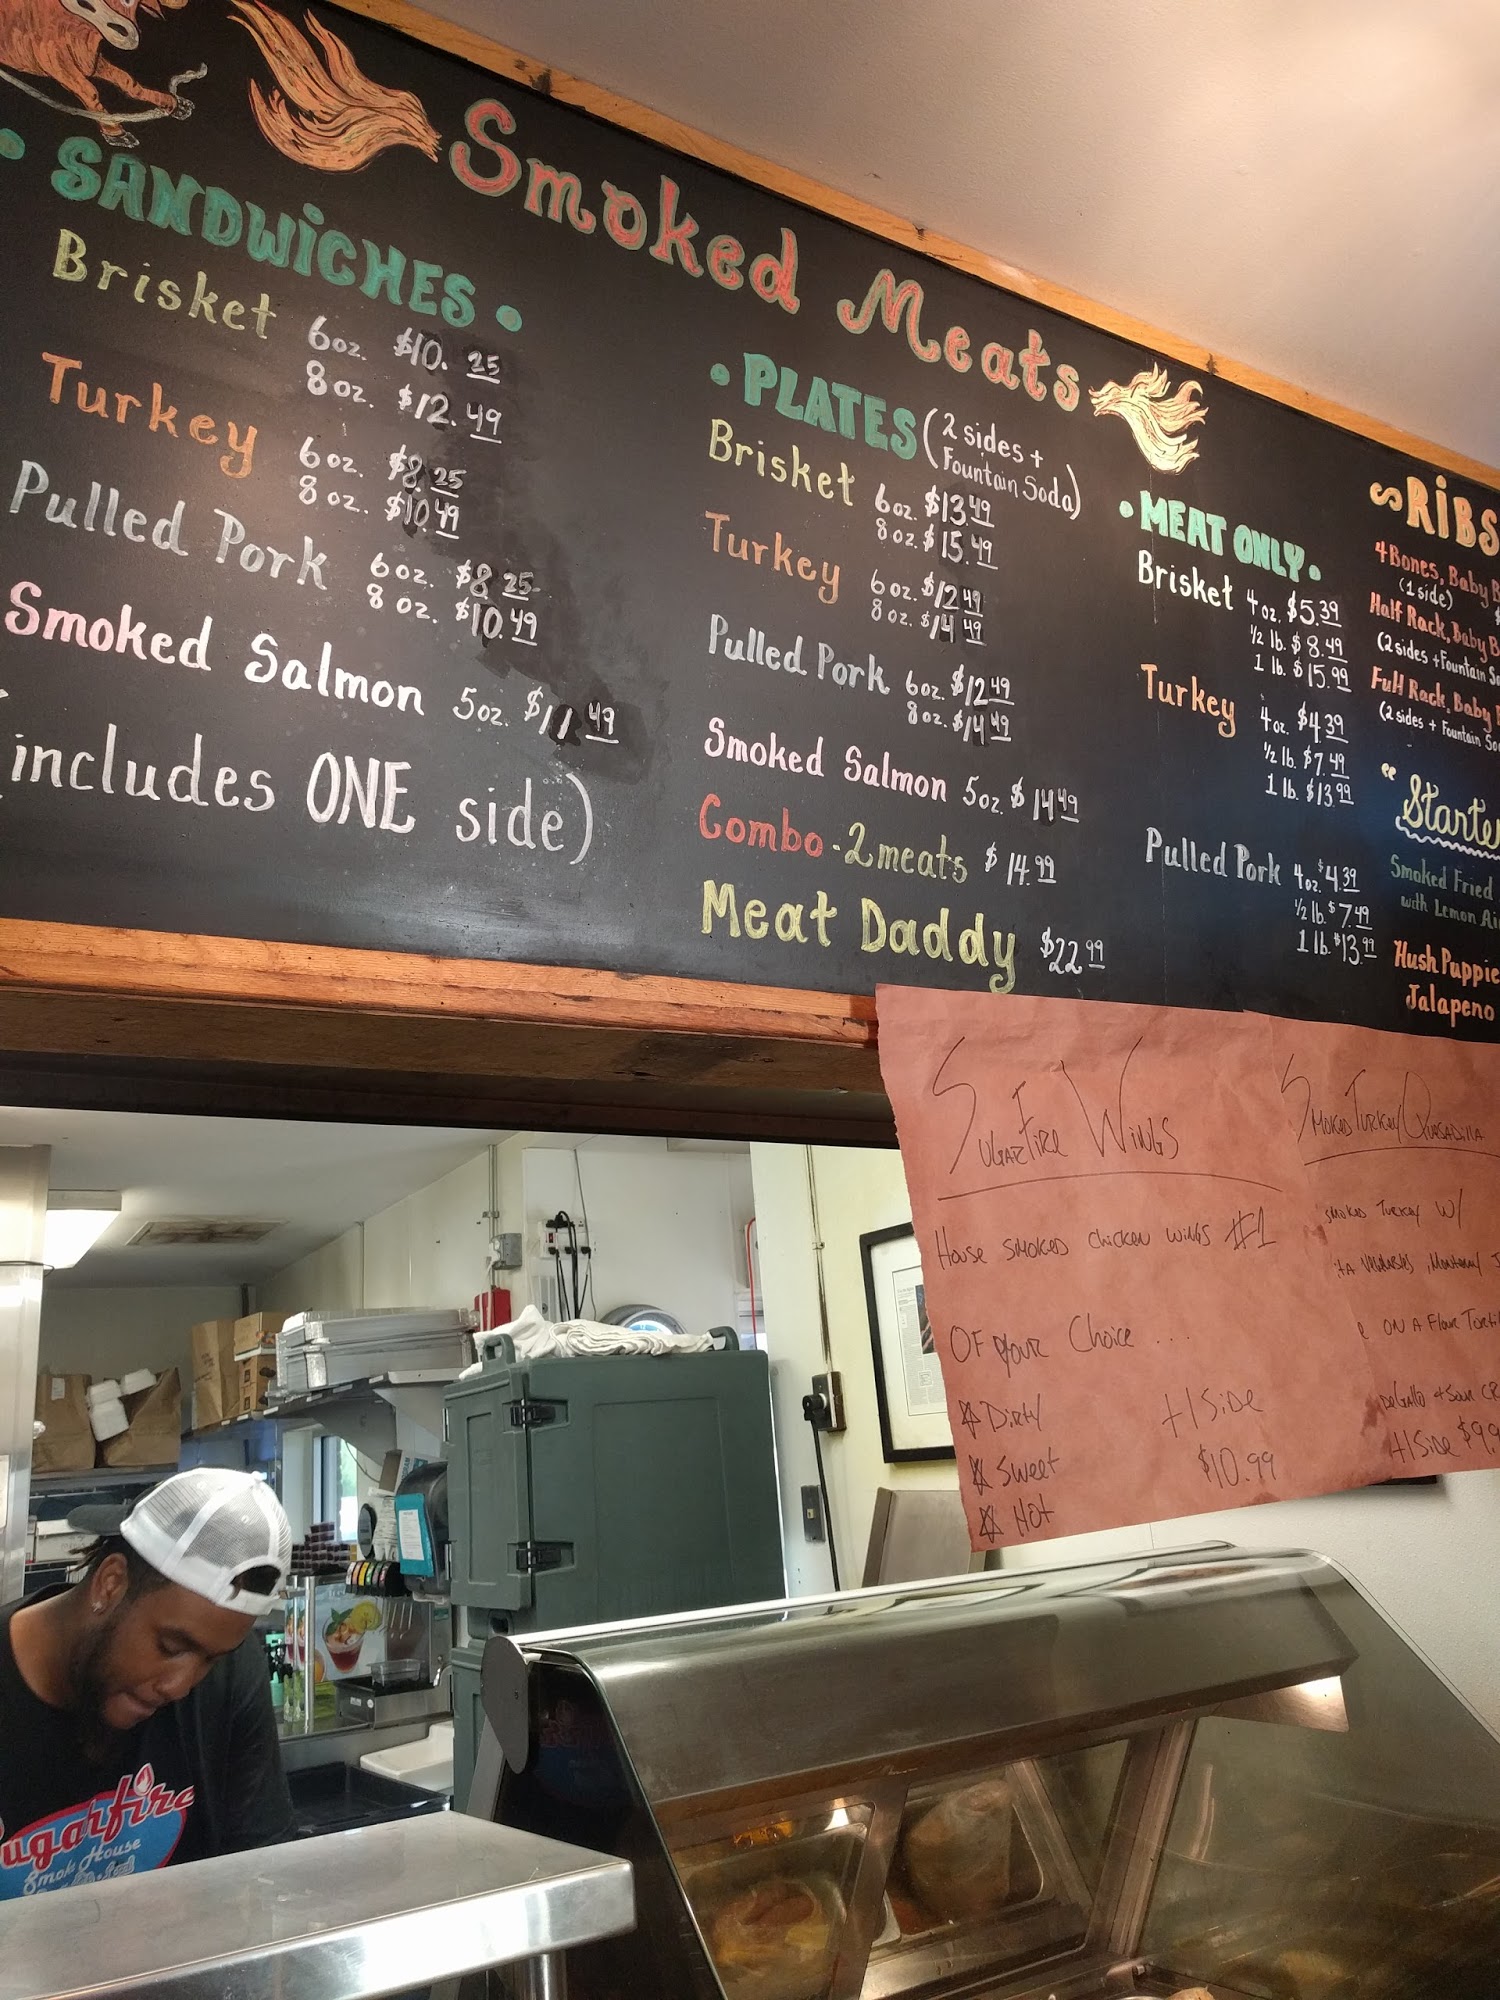 Smoked Meats
• SANDWICHES •
Brisket 6oz. $10.25
8oz. $12.49
Turkey 6oz. $8.25
8oz. $10.49
Pulled Pork 6oz. $8.25
8oz. $10.49
Smoked Salmon 5oz. $11.49
(includes ONE side)
• PLATES (2 sides +
Fountain Soda)
Brisket 6oz. $13.49
8oz. $15.49
Turkey 6oz. $12.49
8oz. $14.49
Pulled Pork 6oz. $12.49
8oz. $14.49
Smoked Salmon 5oz. $14.49
Combo - 2 meats $14.99
Meat Daddy $22.99
• MEAT ONLY •
Brisket 4oz. $5.39
1/2 lb. $8.49
1 lb. $15.99
Turkey 4oz. $4.39
1/2 lb. $7.49
1 lb. $13.99
Pulled Pork 4oz. $4.39
1/2 lb. $7.49
1 lb. $13.99
RiBS
4 Bones, Baby
(1 side)
Half Rack, Baby
(2 sides + Fountain
Full Rack, Baby
(2 sides + Fountain
Smoked Fried
with Lemon
Hush
Jalapeno
SUGARFIRE WINGS
HOUSE SMOKED CHICKEN WINGS #1
OF YOUR CHOICE ....
DIRTY
SWEET
HOT
+1 SIDE
$10.99
SMOKED TURKEY QUESADILLA
SMOKED TURKEY W/
ON A FLOUR
+1 SIDE
Sugarfire
Smoke House